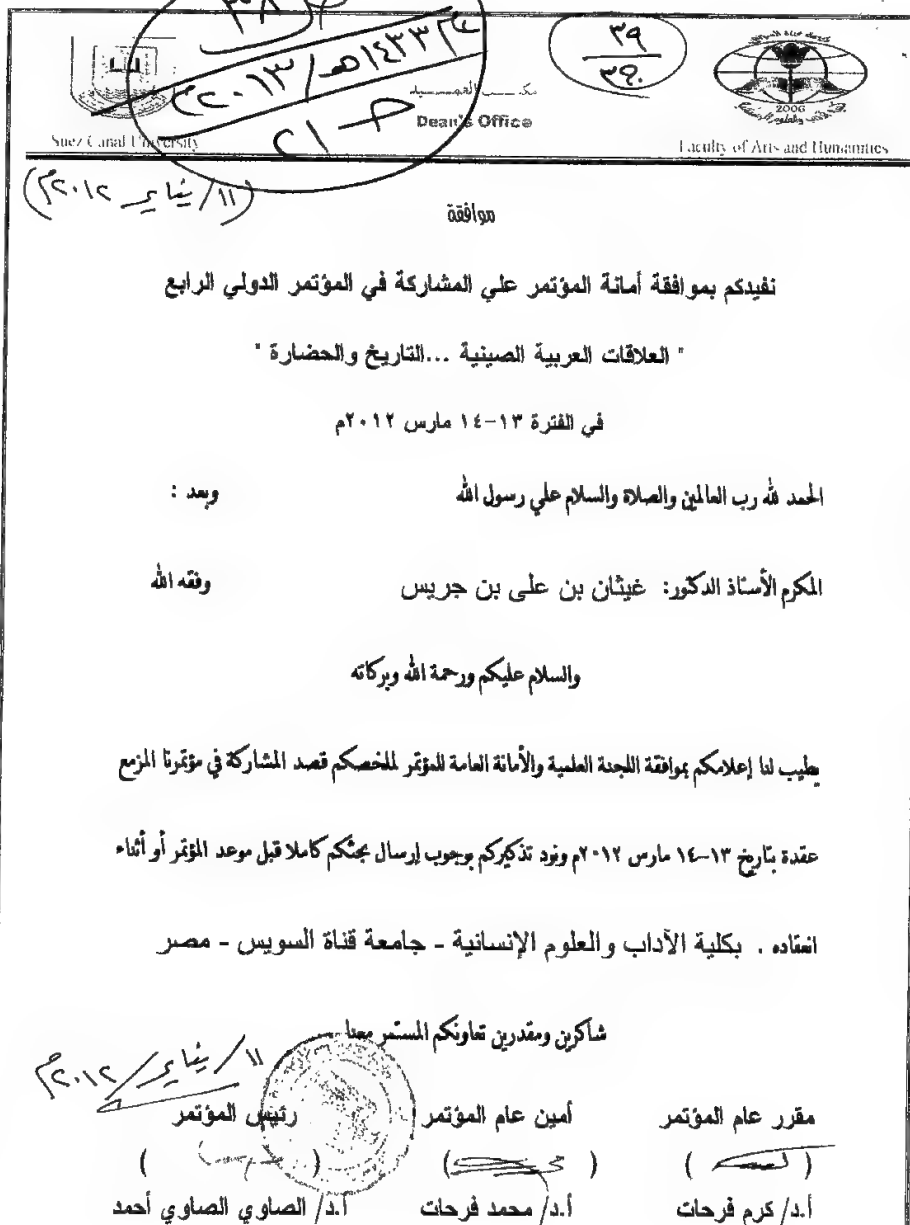 ٣٨
عام ١٤٣٣هـ / ٢٠١٣م
ح ٢١
٣٩
مكتب العميد
Dean's Office
2006
Suez Canal University
Faculty of Arts and Humanities
(١١ / يناير ٢٠١٢م)
موافقة
نفيدكم بموافقة أمانة المؤتمر علي المشاركة في المؤتمر الدولي الرابع
" العلاقات العربية الصينية ...التاريخ والحضارة "
في الفترة ١٣-١٤ مارس ٢٠١٢م
الحمد لله رب العالمين والصلاة والسلام علي رسول الله وبعد :
المكرم الأستاذ الدكتور: غيثان بن على بن جريس وفقه الله
والسلام عليكم ورحمة الله وبركاته
يطيب لنا إعلامكم بموافقة اللجنة العلمية والأمانة العامة للمؤتمر لملخصكم قصد المشاركة في مؤتمرنا المزمع
عقدة بتاريخ ١٣-١٤ مارس ٢٠١٢م ونود تذكيركم بوجوب إرسال بحثكم كاملا قبل موعد المؤتمر أو أثناء
انعقاده . بكلية الآداب والعلوم الإنسانية - جامعة قناة السويس - مصر
شاكرين ومقدرين تعاونكم المستمر معنا
١١ / يناير / ٢٠١٢م
مقرر عام المؤتمر أمين عام المؤتمر رئيس المؤتمر
( ) ( ) ( )
أ.د/ كرم فرحات أ.د/ محمد فرحات أ.د/ الصاوي الصاوي أحمد